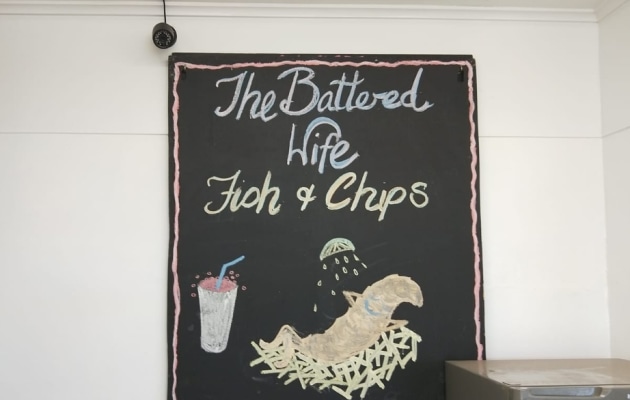 The Battered
Wife
Fish & Chips